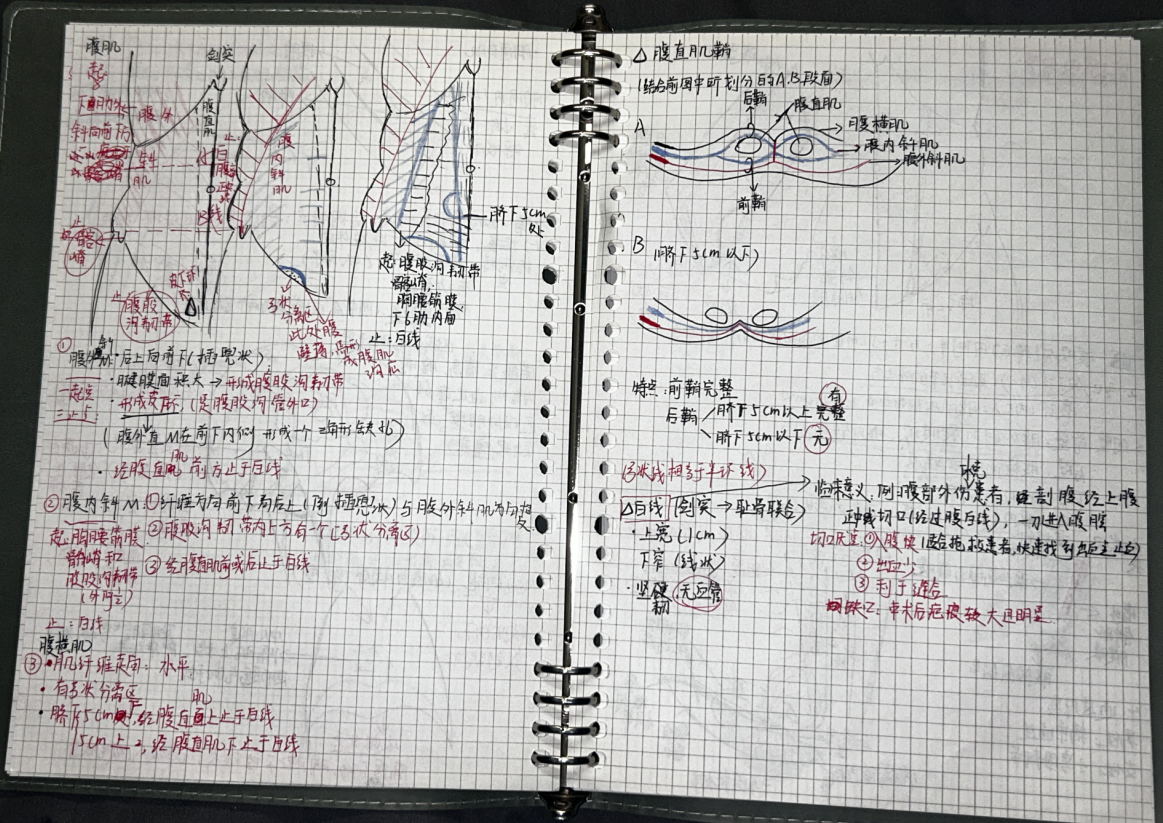 腹肌
剑突
起
下8肋外
斜向前下
止
髂嵴
腹外
斜
肌
腹直肌
A
B
止
白线
皮下环
止
腹股
沟韧带
腹内斜肌
弓状
分离区
此处腹
壁薄,易形
成腹肌
沟疝
脐下5cm
处
起:腹股沟韧带
髂嵴
胸腰筋膜
下6肋内面
止:白线
① 腹外斜M:
后上向前下(插兜状)
·腱膜面积大→形成腹股沟韧带
一起点
三止点:
·形成皮下环(是腹股沟管外口)
(腹外直M在前下内侧形成一个三角形缺孔)
·经腹直肌前方止于白线
②腹内斜M ①纤维方向前下向后上(倒插兜状)与腹外斜肌方向相反
起:胸腰筋膜
髂嵴和
腹股沟韧带
(外侧½)
②腹股沟韧带内上方有一个(弓状分离区)
③经腹直肌前或后止于白线
止:白线
腹横肌
③·肌纤维走向:水平
·有弓状分离区
·脐下5cm处,经腹直肌上止于白线
5cm上,经腹直肌下止于白线
△腹直肌鞘
(结合前图中所划分的A.B.段面)
A
后鞘
腹直肌
腹横肌
腹内斜肌
腹外斜肌
前鞘
B (脐下5cm以下)
特点:前鞘完整
后鞘
脐下5cm以上完整
有
脐下5cm以下无
(弓状线相当于半环线)
△白线(剑突→耻骨联合)
·上宽(1cm)
下窄(线状)
·坚韧
无血管
临床意义:例:腹部外伤患者,经剖腹经上腹
正中线切口(经过腹白线),一刀进入腹腔
切口优点:①入腹快(适合抢救患者,快速找到出血点止血)
②出血少
③利于缝合
缺乙:术后疤痕较大且明显